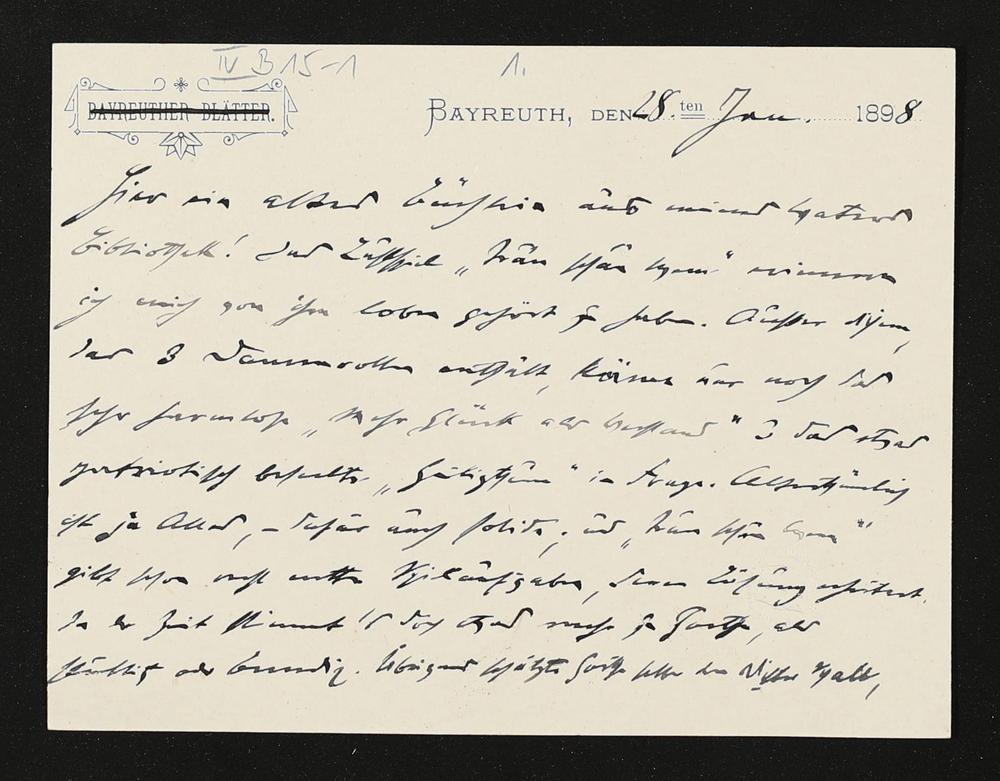 IV B 15-1 1.
BAYREUTHER BLÄTTER.
BAYREUTH, DEN 28. ten Jan. 1898
Hier ein altes Büchlein aus meines Vaters
Bibliothek! Das Lustspiel „Trau schau wem“ erinnere
ich mich von ihm loben gehört zu haben. Außer diesem,
das 3 Damenrollen enthält, käme nur noch das
sehr harmlose „Mehr Glück als Verstand“ u das etwas
patriotisch beseelte in Frage. Altertümlich
ist ja Alles, – dafür auch solide; und „Trau schau wem“
gibt schon recht nette Spielaufgaben, deren Lösung erheitert.
In der Zeit stimmt's doch etwas mehr zu Goethe, als
oder Benedix. Übrigens schätzte Goethe selbst den Dichter Wall,